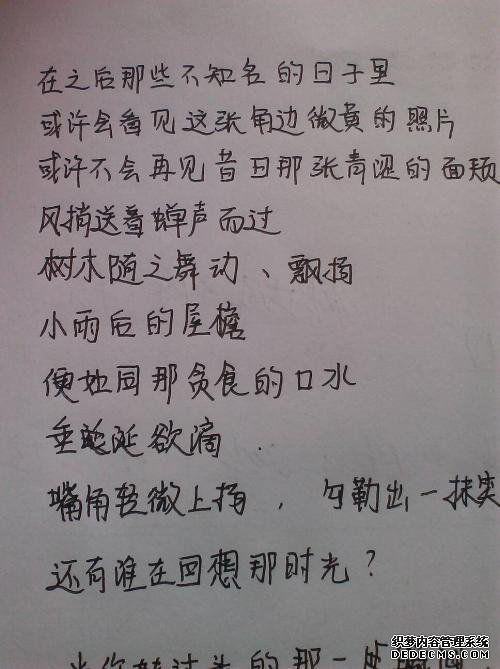 在之后那些不知名的日子里
或许会看见这张角边微黄的照片
或许不会再见昔日那张青涩的面颊
风捎送着蝉声而过
树木随之舞动、飘扬
小雨后的屋檐
便如同那贪食的口水
垂涎欲滴
嘴角轻微上扬，勾勒出一抹笑
还有谁在回想那时光？
当你转过头的那一
织梦内容管理系统
DEDECMS.COM